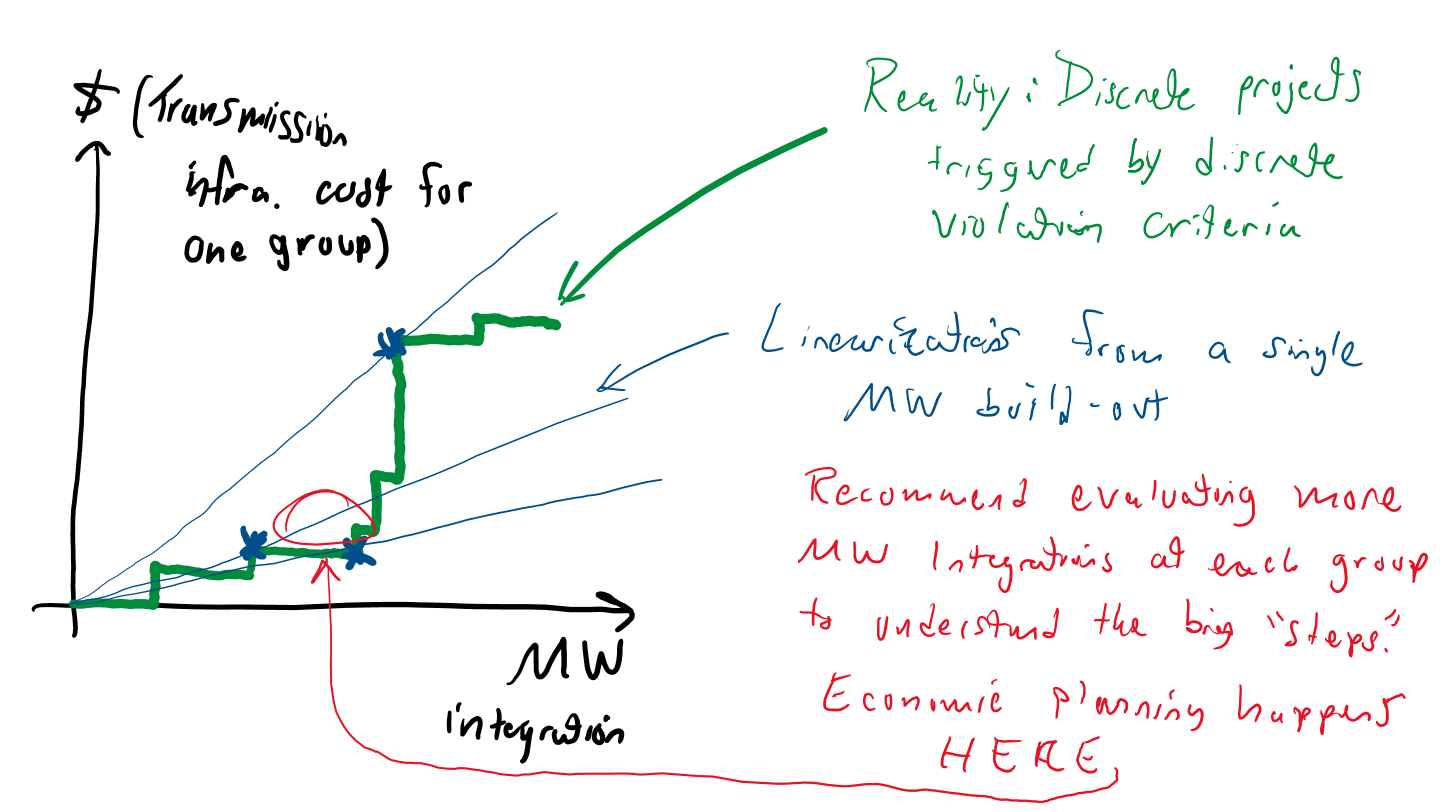 $ (Transmission
infra. cost for
one group)
Reality: Discrete projects
triggered by discrete
violation criteria
Linearizations from a single
MW build-out
Recommend evaluating more
MW Integrations at each group
to understand the big "steps."
Economic planning happens
HERE
MW
integration